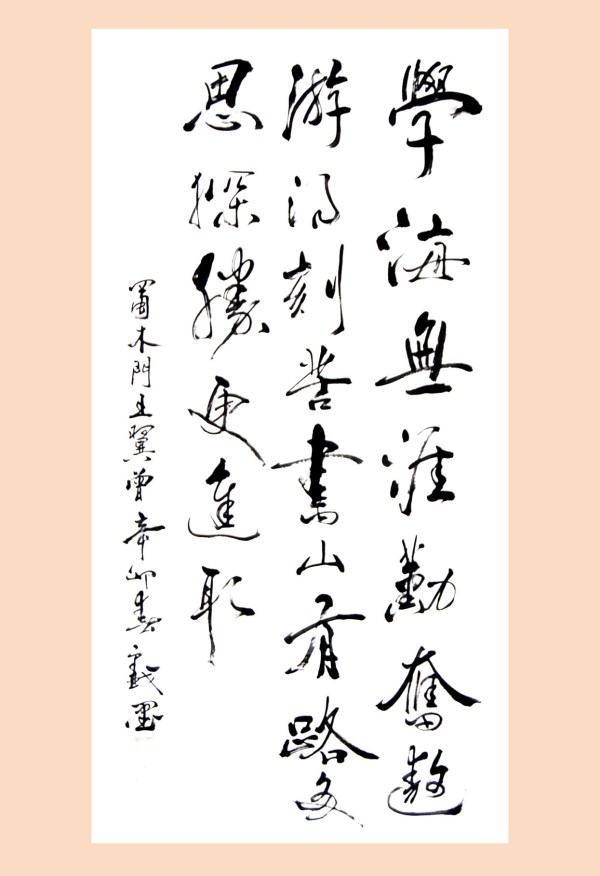 學海無涯勤奮遨
游得刻苦書山有路多
思探勝更進取
蜀木門王翼曾辛卯春戲墨